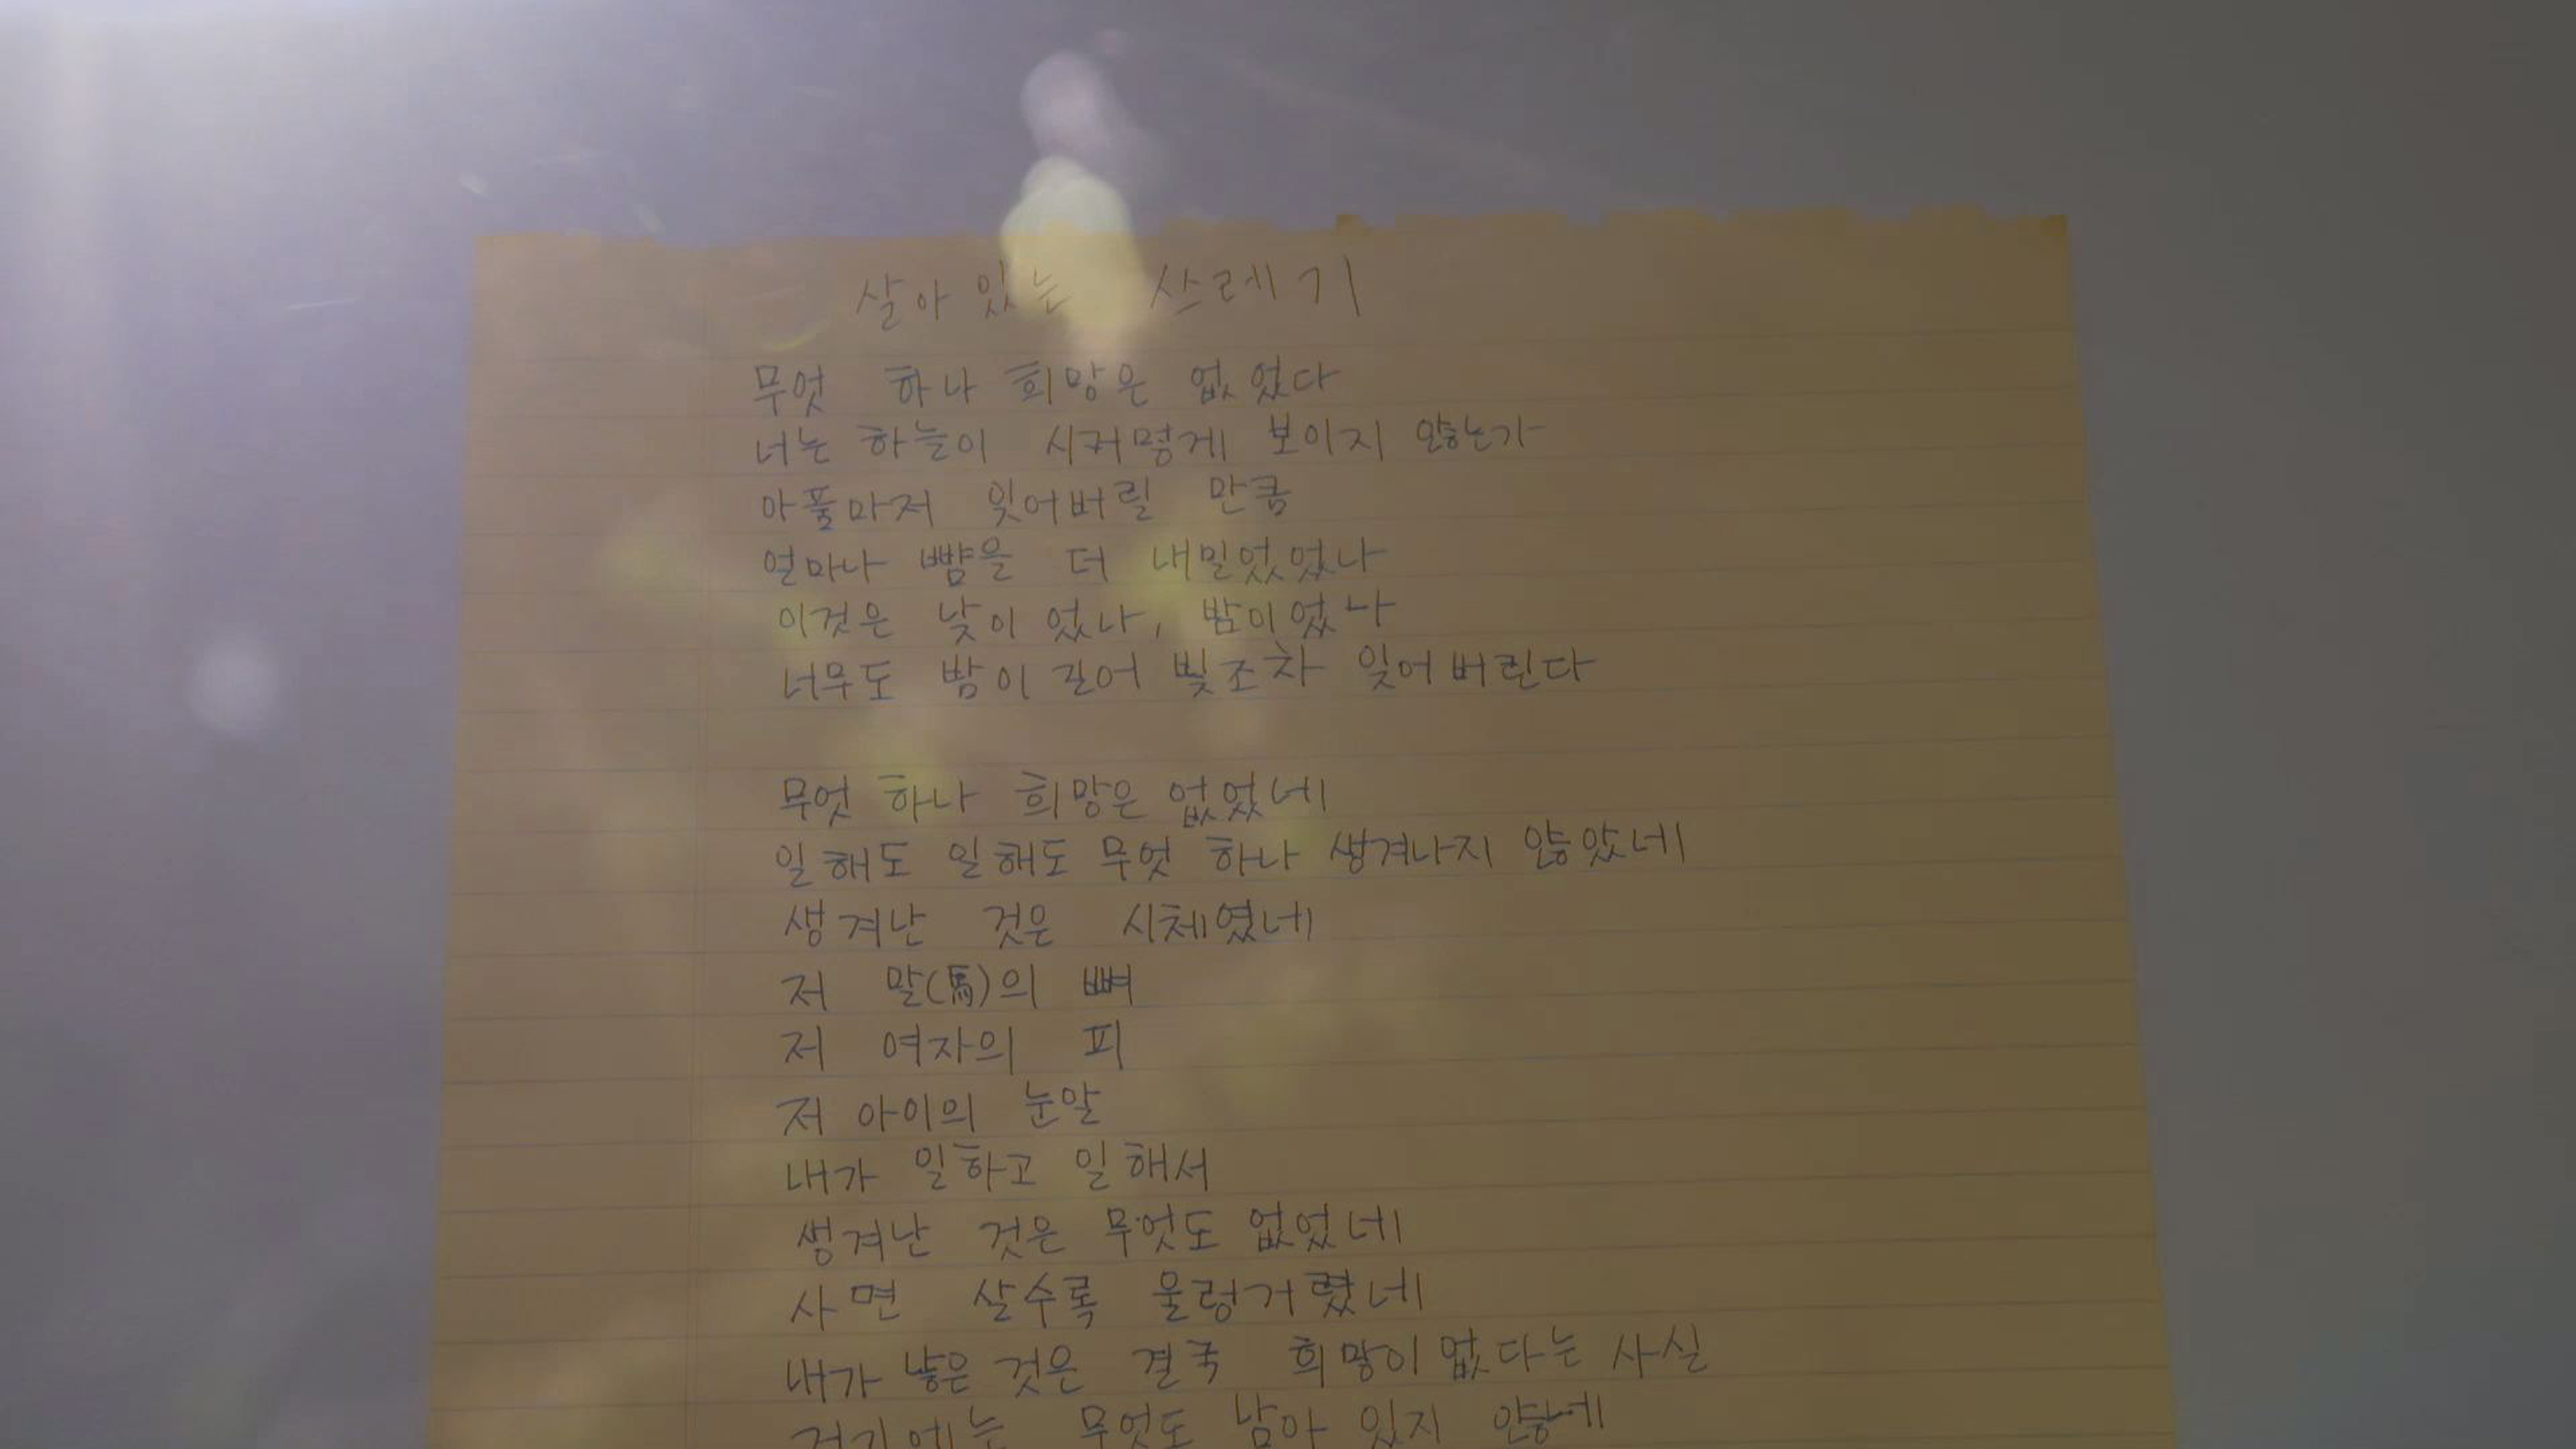 살아 있는 쓰레기
무엇 하나 희망은 없었다
너는 하늘이 시커멓게 보이지 않는가
아픔마저 잊어버릴 만큼
얼마나 뺨을 더 내밀었었나
이것은 낮이었나, 밤이었나
너무도 밤이 길어 빛조차 잊어버린다
무엇 하나 희망은 없었네
일해도 일해도 무엇 하나 생겨나지 않았네
생겨난 것은 시체였네
저 말(馬)의 뼈
저 여자의 피
저 아이의 눈알
내가 일하고 일해서
생겨난 것은 무엇도 없었네
사면 살수록 울렁거렸네
내가 낳은 것은 결국 희망이 없다는 사실
거기에는 무엇도 남아 있지 않네